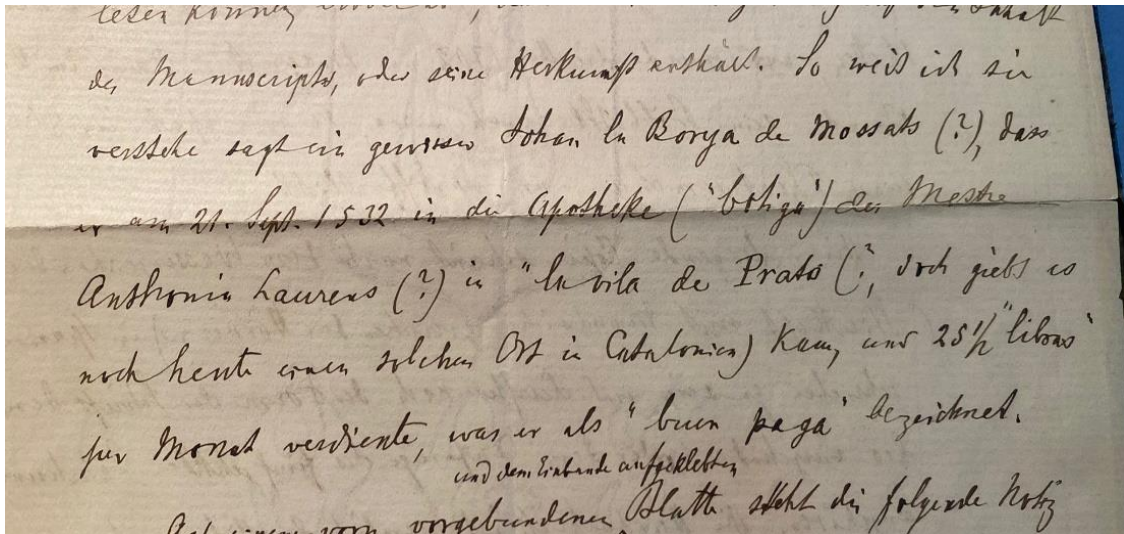 lesen können
des Manuscripts, oder seine Herkunft enthält. So weit ich sie
verstehe sagt ein gewisser Johan la Borya de Mossats (?), dass
er am 21. Sept. 1532 in die Apotheke ("botiga") des Mestre
Anthonin Laurens (?) in "la vila de Prats (?, doch giebt es
noch heute einen solchen Ort in Catalonien) kam, und 25 1/2 "libras"
per Monat verdiente, was er als "buen paga" bezeichnet.
und dem Einbande aufgeklebten
Auf einem vorn vorgebundenen Blatte steht die folgende Notiz